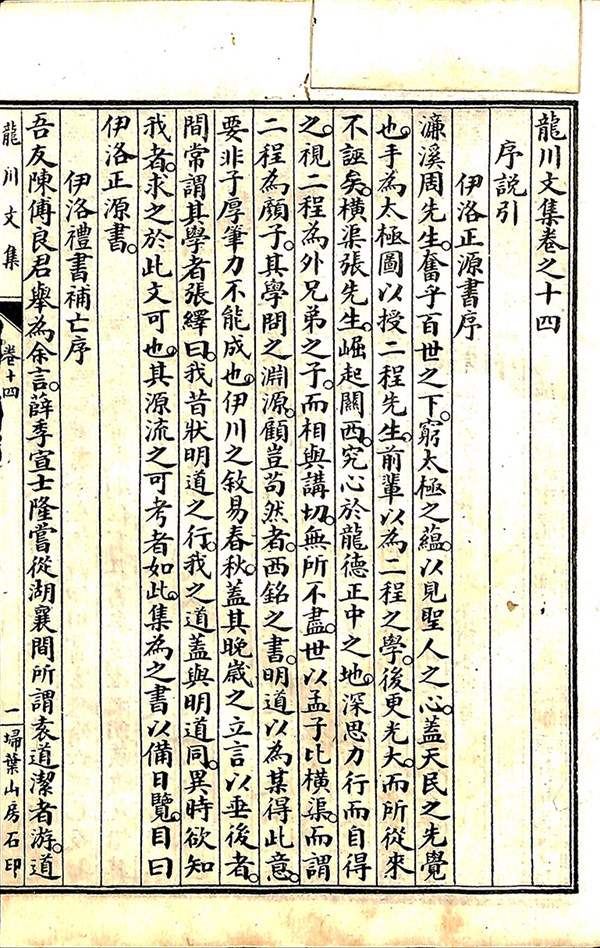 龍川文集卷之十四
序說引
伊洛正源書序
濂溪周先生。奮乎百世之下。窮太極之蘊。以見聖人之心。蓋天民之先覺
也。手為太極圖以授二程先生。前輩以為二程之學。後更光大。而所從來
不誣矣。橫渠張先生。崛起關西。究心於龍德正中之地。深思力行而自得
之。視二程為外兄弟之子。而相與講切。無所不盡。世以孟子比橫渠。而謂
二程為顏子。其學問之淵源。顧豈苟然者。西銘之書。明道以為某得此意。
要非子厚筆力不能成也。伊川之敘易春秋。蓋其晚歲之立言以垂後者。
間常謂其學者張繹曰。我昔狀明道之行。我之道蓋與明道同。異時欲知
我者。求之於此文可也。其源流之可考者如此。集為之書以備日覽。目曰
伊洛正源書。
伊洛禮書補亡序
吾友陳傅良君舉為余言。薛季宣士隆嘗從湖襄間所謂袁道潔者游。道
龍川文集
卷十四
一
掃葉山房石印